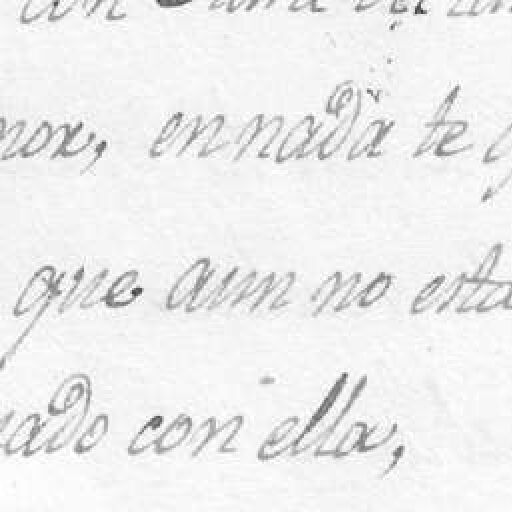 con
nor, en nada te
que aun no esta
ado con ella,